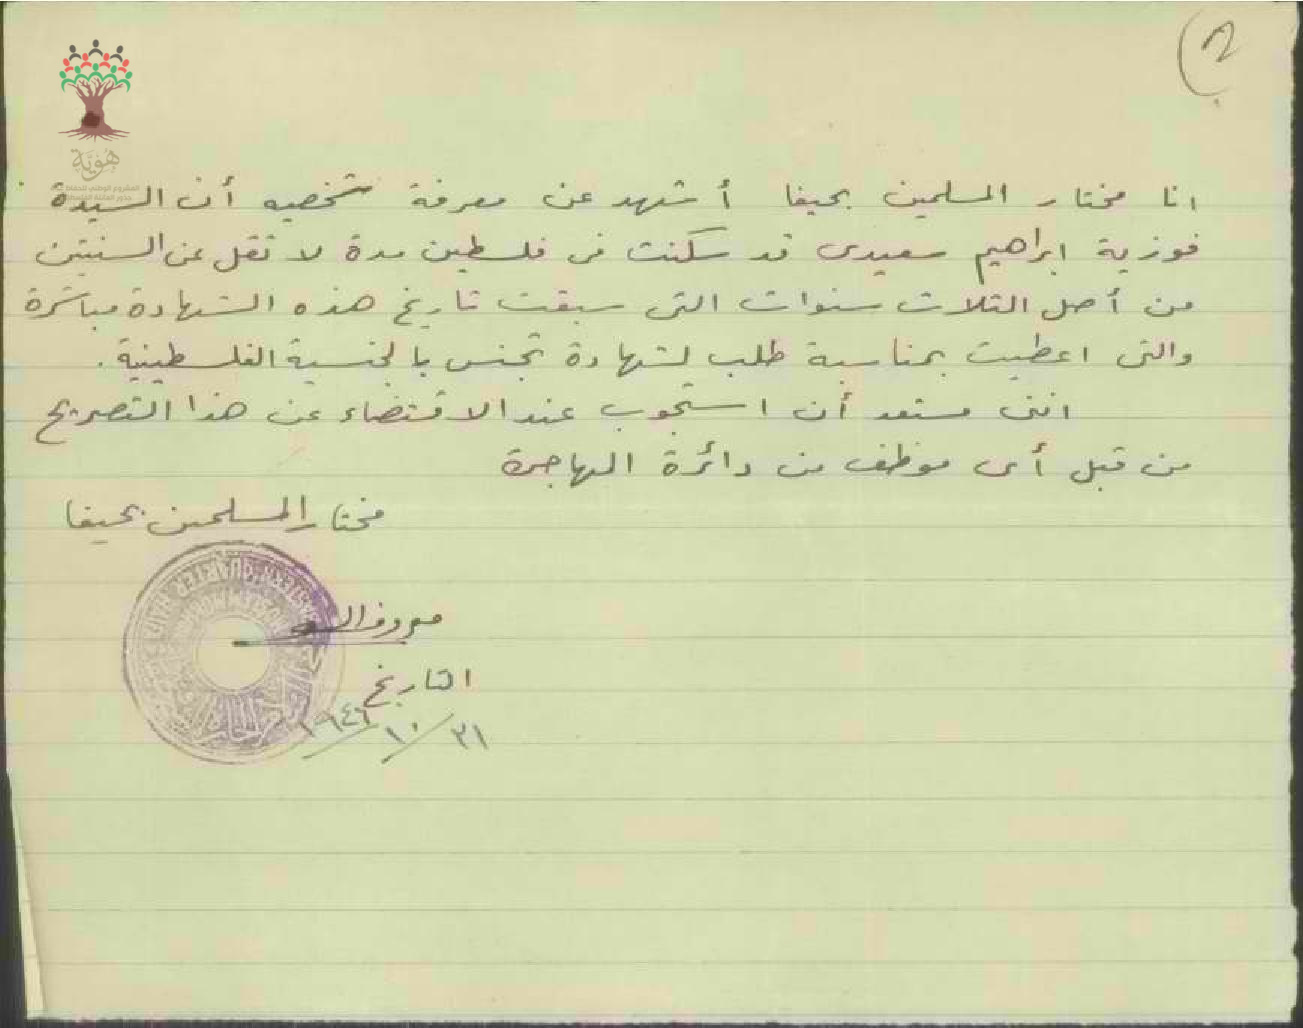 ٢
هُوِيَّة
انا مختار المسلمين بحيفا أشهد عن معرفة شخصيه أن السيدة
فوزية ابراهيم سعيدى قد سكنت فى فلسطين مدة لا تقل عن السنتين
من أصل الثلاث سنوات التى سبقت تاريخ هذه الشهادة مباشرة
والتى اعطيت بمناسبة طلب لشهادة تجنس بالجنسية الفلسطينية.
اننى مستعد أن استجوب عند الاقتضاء عن هذا التصريح
من قبل أى موظف من دائرة المهاجرة
مختار المسلمين بحيفا
معروف
التاريخ
٢١/١٠/١٩٤٦